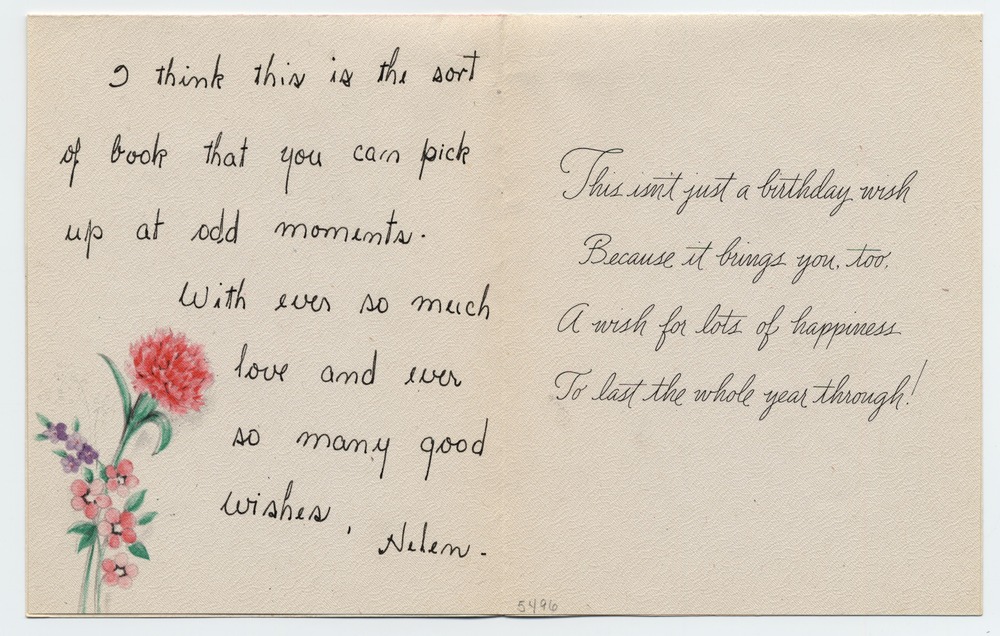 I think this is the sort
of book that you can pick
up at odd moments.
With ever so much
love and ever
so many good
wishes,
Helen.
This isn't just a birthday wish
Because it brings you, too,
A wish for lots of happiness
To last the whole year through!
5496